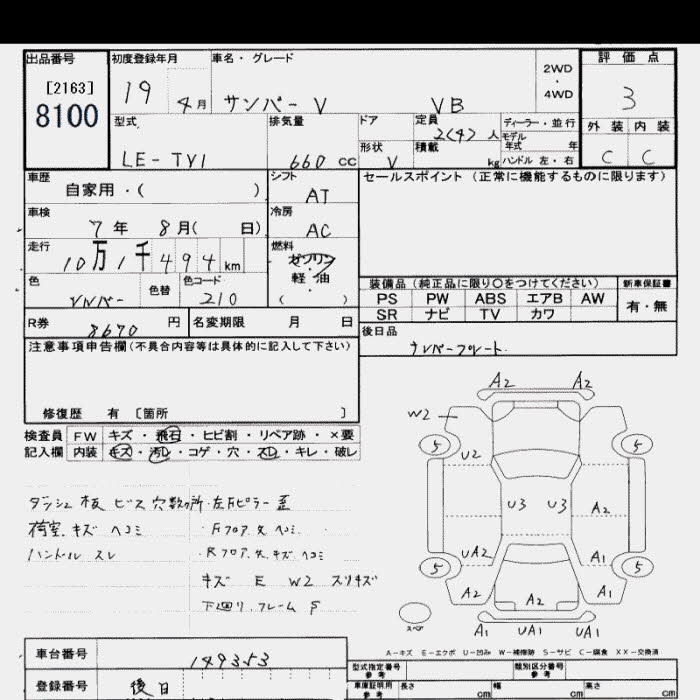 出品番号 初度登録年月 車名・グレード 2WD・4WD 評価点
[2163]
8100
19 4月 サンバーV VB 3
型式 排気量 ドア 定員 ディーラー・並行 外装 内装
LE-TV1 660cc 2(4)人 モデル年式 年 C C
形状 積載
V kg ハンドル 左・右
車歴 シフト セールスポイント(正常に機能するものに限ります)
自家用・( ) AT
車検 冷房
7年 8月( 日) AC
走行 燃料
10万1千494km ガソリン・軽油
色 色替 色コード ( )
シルバー 210
装備品(純正品に限り〇をつけてください) 新車保証書
PS PW ABS エアB AW 有・無
SR ナビ TV カワ
R券 8670円 名変期限 月 日 後日品
ナンバープレート
注意事項申告欄(不具合内容等は具体的に記入して下さい)
修復歴 有 〔箇所 〕
検査員 FW キズ・飛石・ヒビ割・リペア跡・×要
記入欄 内装 キズ・汚レ・コゲ・穴・スレ・キレ・破レ
ダッシュ板 ビス穴数ヶ所・左Fピラー歪
荷室 キズ ヘコミ ・Fフロア 大 ヘコミ
ハンドル スレ ・Rフロア 大 キズ ヘコミ
キズ E W2 スリキズ
下廻り フレーム S
A2 A2
W2
5 5
U2
U3 U3 A2
UA2 A1
5 5
A2 A2 A1
スペア A1 UA1 UA1
A-キズ E-エクボ U-凹み W-補修跡 S-サビ C-腐食 XX-交換済
車台番号 149353
型式指定番号 参考 類別区分番号 参考
登録番号 後日
車庫証明用 参考 長さ cm 幅 cm 高さ cm